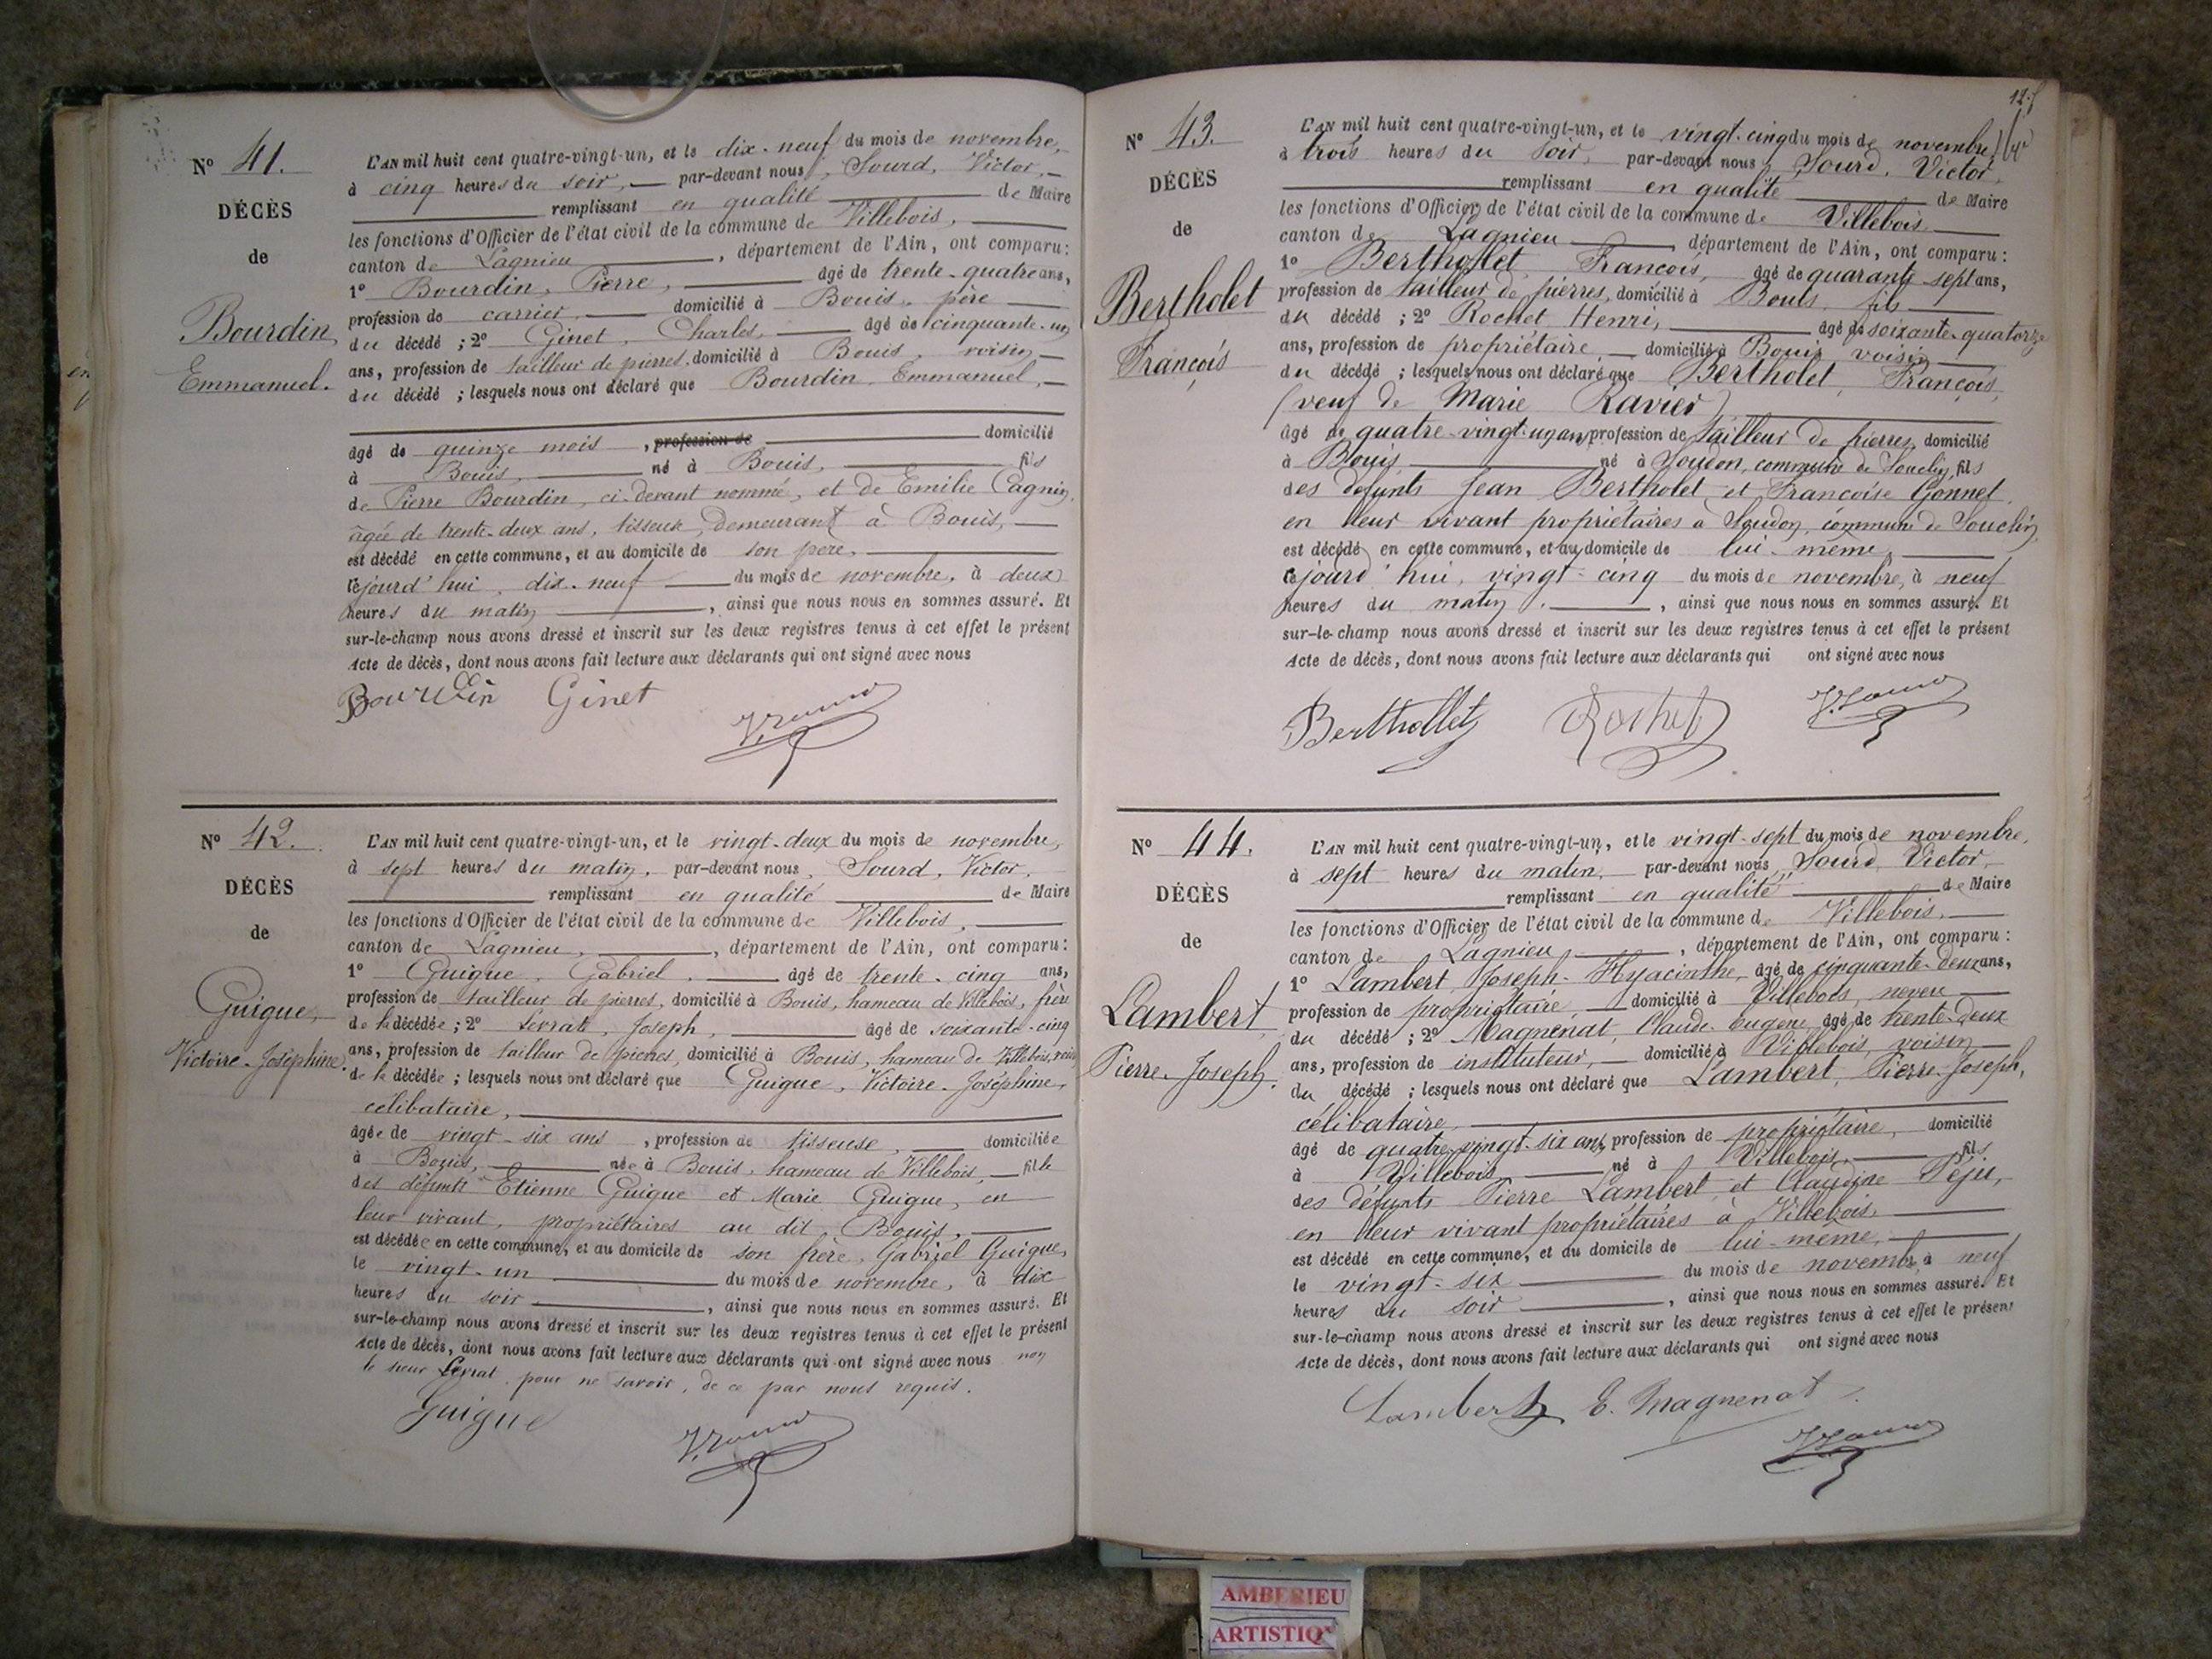 N° 41.
DÉCÈS
de
Bourdin,
Emmanuel.
L'AN mil huit cent quatre-vingt-un, et le dix-neuf du mois de novembre,
à cinq heures du soir, par-devant nous, Sourd, Victor,
remplissant en qualité de Maire
les fonctions d'Officier de l'état civil de la commune de Villebois,
canton de Lagnieu, département de l'Ain, ont comparu:
1° Bourdin, Pierre, âgé de trente-quatre ans,
profession de carrier, domicilié à Bouis, père
du décédé ; 2° Ginet, Charles, âgé de cinquante-un
ans, profession de tailleur de pierres, domicilié à Bouis, voisin
du décédé ; lesquels nous ont déclaré que Bourdin, Emmanuel,
âgé de quinze mois, profession de domicilié
à Bouis, né à Bouis, fils
de Pierre Bourdin, ci-devant nommé, et de Emilie Cagnin,
âgée de trente-deux ans, tisseuse, demeurant à Bouis,
est décédé en cette commune, et au domicile de son père,
cejourd'hui, dix-neuf du mois de novembre, à deux
heures du matin, ainsi que nous nous en sommes assuré. Et
sur-le-champ nous avons dressé et inscrit sur les deux registres tenus à cet effet le présent
Acte de décès, dont nous avons fait lecture aux déclarants qui ont signé avec nous
Bourdin Ginet
N° 42.
DÉCÈS
de
Guigue,
Victoire-Joséphine.
L'AN mil huit cent quatre-vingt-un, et le vingt-deux du mois de novembre,
à sept heures du matin, par-devant nous, Sourd, Victor,
remplissant en qualité de Maire
les fonctions d'Officier de l'état civil de la commune de Villebois,
canton de Lagnieu, département de l'Ain, ont comparu:
1° Guigue, Gabriel, âgé de trente-cinq ans,
profession de tailleur de pierres, domicilié à Bouis, hameau de Villebois, frère
de la décédée ; 2° Levrat, Joseph, âgé de soixante-cinq
ans, profession de tailleur de pierres, domicilié à Bouis, hameau de Villebois,
de la décédée ; lesquels nous ont déclaré que Guigue, Victoire-Joséphine,
célibataire,
âgée de vingt-six ans, profession de tisseuse, domiciliée
à Bouis, née à Bouis, hameau de Villebois, fille
des défunts Etienne Guigue et Marie Guigue, en
leur vivant, propriétaires au dit Bouis,
est décédée en cette commune, et au domicile de son frère, Gabriel Guigue,
le vingt-un du mois de novembre, à dix
heures du soir, ainsi que nous nous en sommes assuré. Et
sur-le-champ nous avons dressé et inscrit sur les deux registres tenus à cet effet le présent
Acte de décès, dont nous avons fait lecture aux déclarants qui ont signé avec nous non
le sieur Levrat, pour ne savoir, de ce par nous requis.
Guigue
N° 43.
DÉCÈS
de
Bertholet
François
L'AN mil huit cent quatre-vingt-un, et le vingt-cinq du mois de novembre,
à trois heures du soir, par-devant nous, Sourd, Victor,
remplissant en qualité de Maire
les fonctions d'Officier de l'état civil de la commune de Villebois
canton de Lagnieu, département de l'Ain, ont comparu :
1° Bertholet, François, âgé de quarante sept ans,
profession de tailleur de pierres, domicilié à Bouis, fils
du décédé ; 2° Rochet Henri, âgé de soixante-quatorze
ans, profession de propriétaire, domicilié à Bouis, voisin
du décédé ; lesquels nous ont déclaré que Bertholet, François,
(veuf de Marie Ravier)
âgé de quatre-vingt-un ans, profession de tailleur de pierres, domicilié
à Bouis né à Soudon, commune de Souclin, fils
des défunts Jean Bertholet et Francoise Gonnet
en leur vivant propriétaires à Soudon, commune de Souclin,
est décédé en cette commune, et au domicile de lui-même,
cejourd'hui, vingt-cinq du mois de novembre, à neuf
heures du matin, ainsi que nous nous en sommes assuré. Et
sur-le-champ nous avons dressé et inscrit sur les deux registres tenus à cet effet le présent
Acte de décès, dont nous avons fait lecture aux déclarants qui ont signé avec nous
Berthollet Rochet
N° 44.
DÉCÈS
de
Lambert,
Pierre-Joseph.
L'AN mil huit cent quatre-vingt-un, et le vingt-sept du mois de novembre,
à sept heures du matin, par-devant nous, Sourd, Victor,
remplissant en qualité de Maire
les fonctions d'Officier de l'état civil de la commune de Villebois,
canton de Lagnieu, département de l'Ain, ont comparu :
1° Lambert, Joseph-Hyacinthe, âgé de cinquante-deux ans,
profession de propriétaire, domicilié à Villebois, neveu
du décédé ; 2° Magnenat, Claude-Eugène, âgé de trente-deux
ans, profession de instituteur, domicilié à Villebois, voisin
du décédé ; lesquels nous ont déclaré que Lambert, Pierre-Joseph,
célibataire,
âgé de quatre-vingt-six ans, profession de propriétaire, domicilié
à Villebois, né à Villebois, fils
des défunts Pierre Lambert et Claudine Péju,
en leur vivant propriétaires à Villebois,
est décédé en cette commune, et au domicile de lui-même,
le vingt-six du mois de novembre, à neuf
heures du soir, ainsi que nous nous en sommes assuré. Et
sur-le-champ nous avons dressé et inscrit sur les deux registres tenus à cet effet le présent
Acte de décès, dont nous avons fait lecture aux déclarants qui ont signé avec nous
Lambert E. Magnenat
AMBERIEU
ARTISTIQ